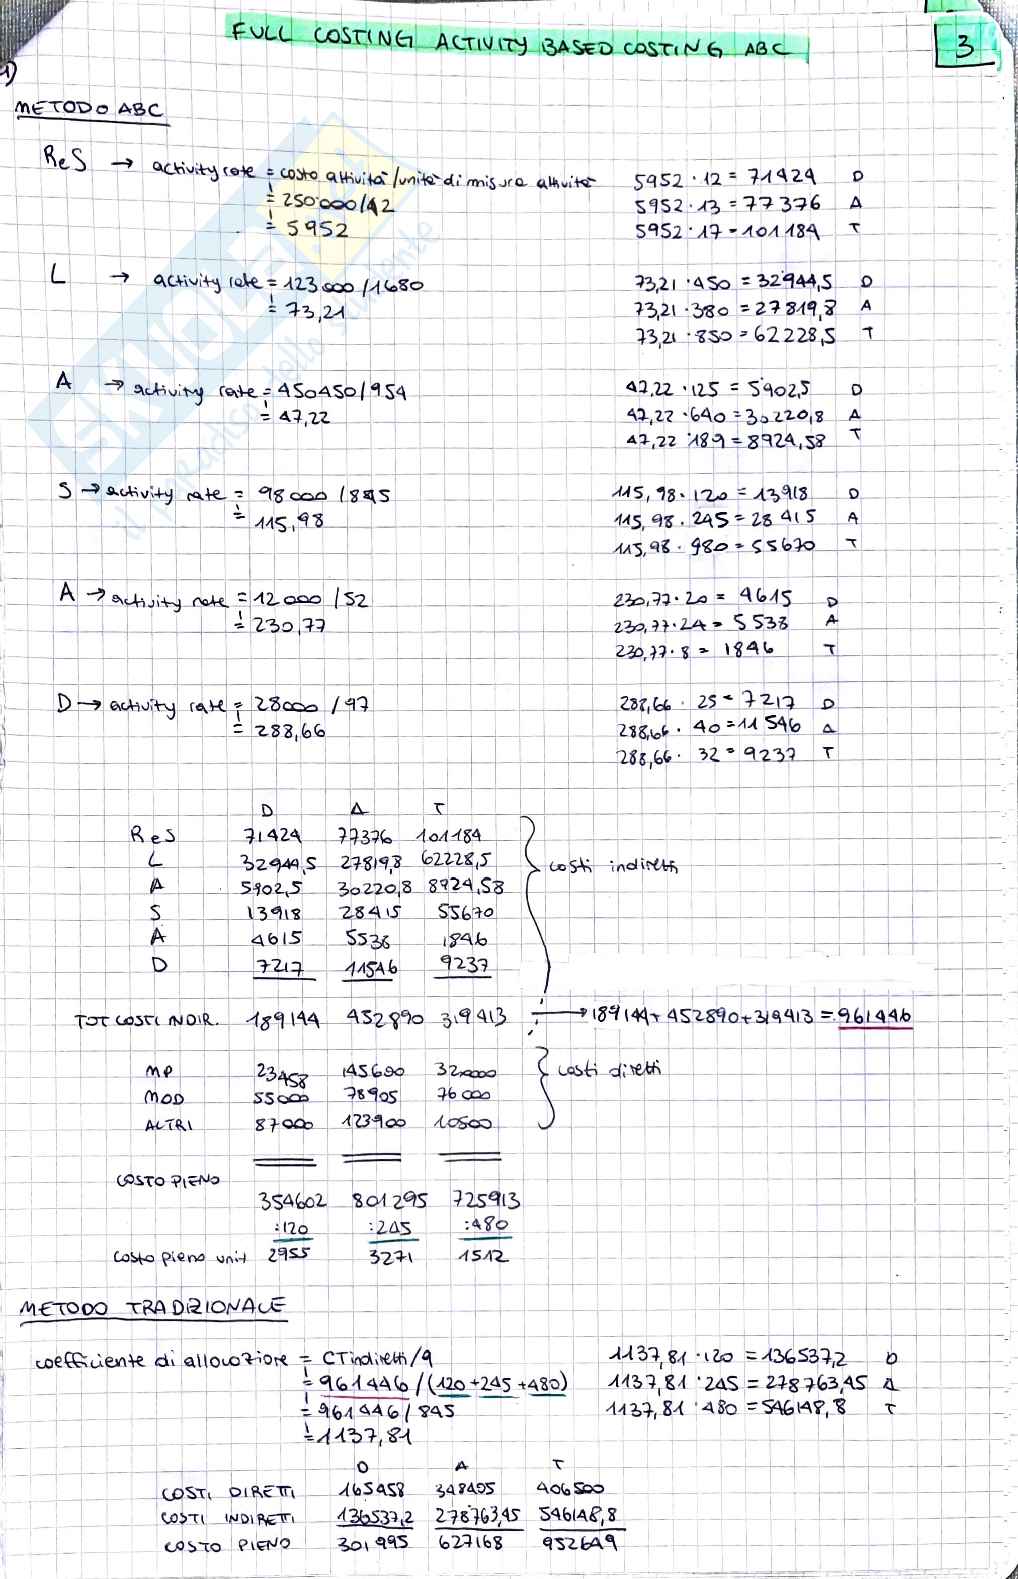 FULL COSTING ACTIVITY BASED COSTING ABC
3
1)
METODO ABC
ReS → activity rate = costo attività/unità di misura attività
= 250000/42
= 5952
5952 · 12 = 71424 D
5952 · 13 = 77376 A
5952 · 17 = 101184 T
L → activity rate = 123000/1680
= 73,21
73,21 · 450 = 32944,5 D
73,21 · 380 = 27819,8 A
73,21 · 850 = 62228,5 T
A → activity rate = 450450/954
= 47,22
47,22 · 125 = 5902,5 D
47,22 · 640 = 30220,8 A
47,22 · 189 = 8924,58 T
S → activity rate = 98000/845
= 115,98
115,98 · 120 = 13918 D
115,98 · 245 = 28415 A
115,98 · 480 = 55670 T
A → activity rate = 12000/52
= 230,77
230,77 · 20 = 4615 D
230,77 · 24 = 5538 A
230,77 · 8 = 1846 T
D → activity rate = 28000/97
= 288,66
288,66 · 25 = 7217 D
288,66 · 40 = 11546 A
288,66 · 32 = 9237 T
D A T
ReS 71424 77376 101184
L 32944,5 27819,8 62228,5
A 5902,5 30220,8 8924,58
S 13918 28415 55670
A 4615 5538 1846
D 7217 11546 9237
costi indiretti
TOT COSTI INDIR. 189144 452890 319413 → 189144 + 452890 + 319413 = 961446
MP 23458 145690 320000
MOD 55000 78905 76000
ALTRI 87000 123900 10500
costi diretti
COSTO PIENO
354602 801295 725913
:120 :245 :480
costo pieno unit 2955 3271 1512
METODO TRADIZIONALE
coefficiente di allocazione = CTindiretti/q
= 961446/(120+245+480)
= 961446/845
= 1137,81
1137,81 · 120 = 136537,2 D
1137,81 · 245 = 278763,45 A
1137,81 · 480 = 546148,8 T
D A T
COSTI DIRETTI 165458 348495 406500
COSTI INDIRETTI 136537,2 278763,45 546148,8
COSTO PIENO 301995 627168 952649